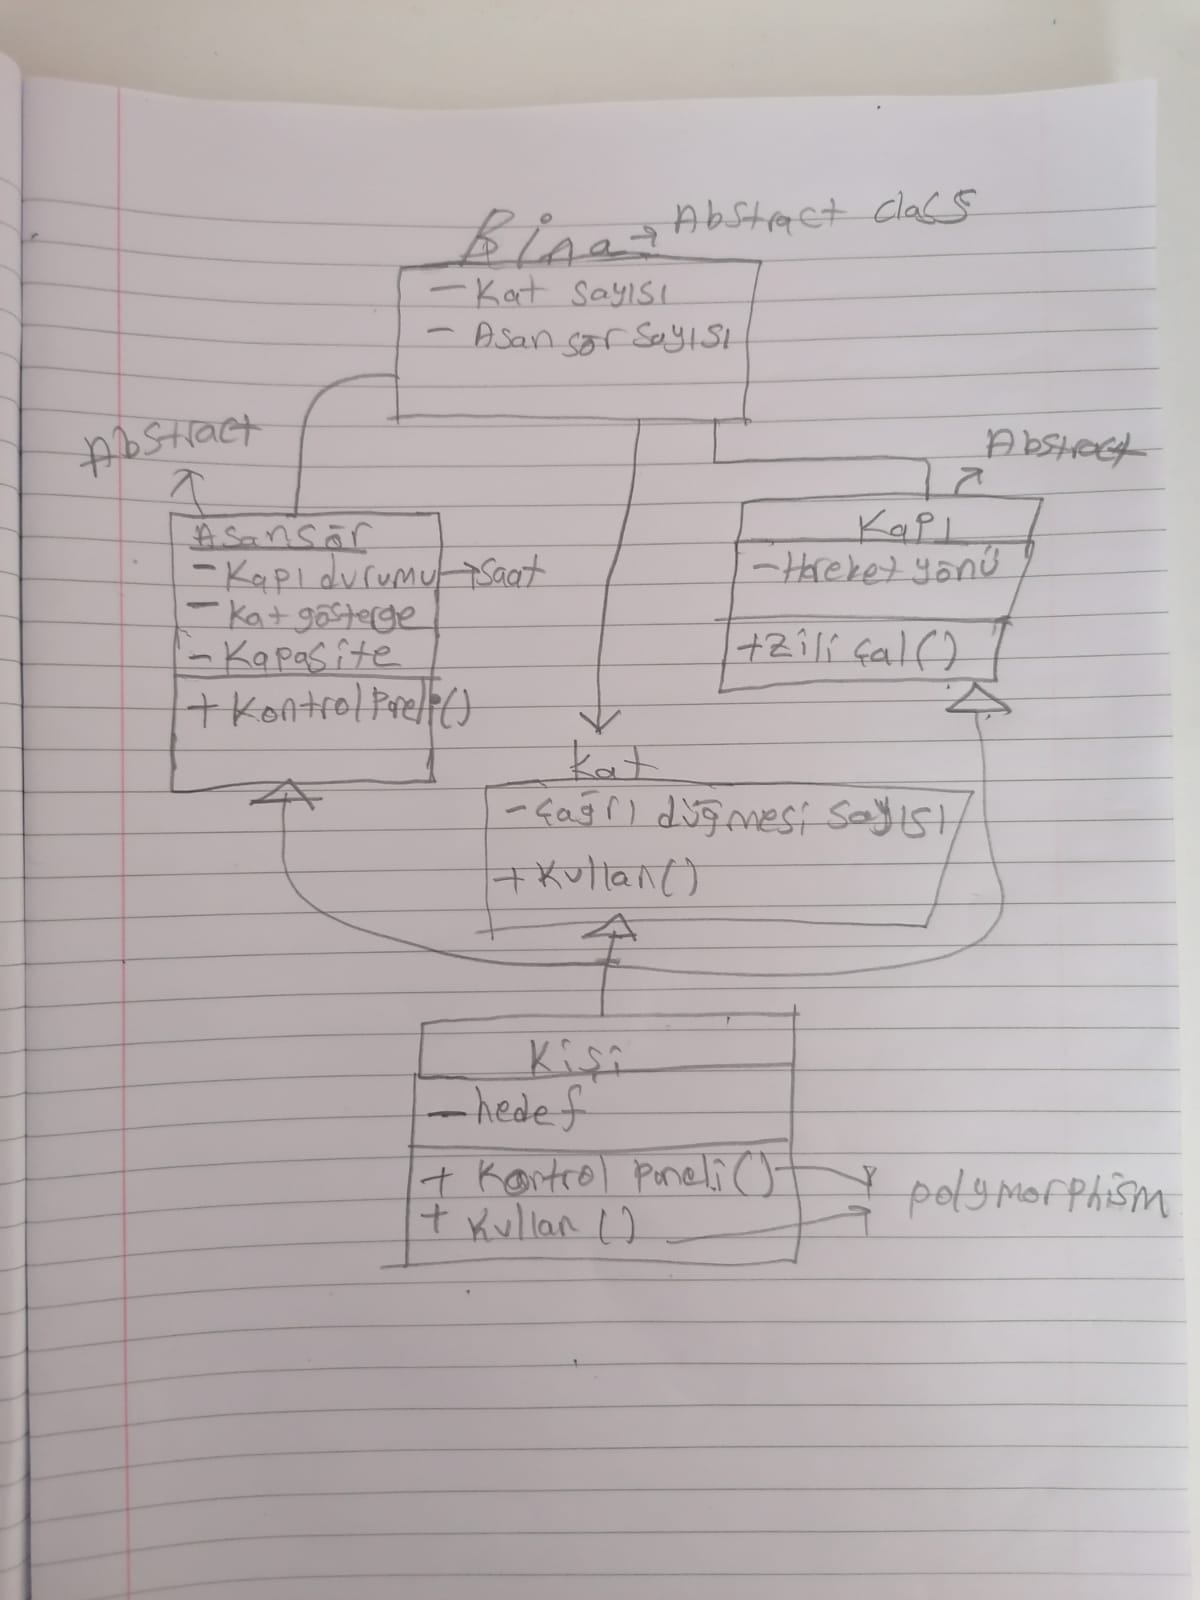 Bina → Abstract class
- Kat sayısı
- Asansör sayısı
Abstract
Asansör
- Kapı durumu → Saat
- Kat gösterge
- Kapasite
+ Kontrol Paneli()
Abstract
Kapı
- Hareket yönü
+ Zili çal()
Kat
- Çağrı düğmesi sayısı
+ Kullan()
Kişi
- hedef
+ Kontrol paneli()
+ Kullan()
polymorphism